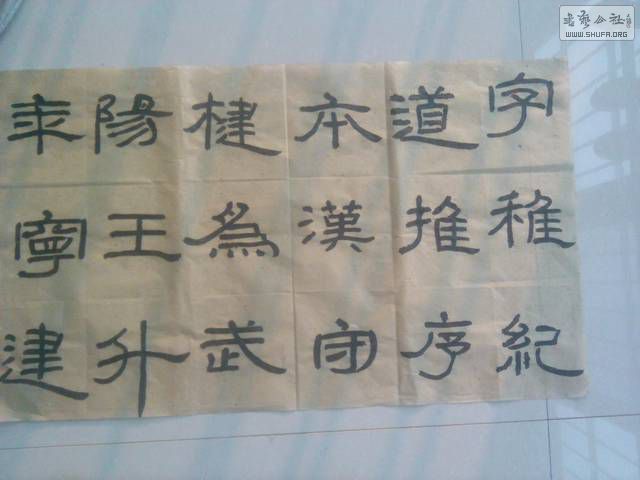 字稚紀
道推序
本漢守
楗為武
陽王升
寧建
書藝公社
WWW.SHUFA.ORG